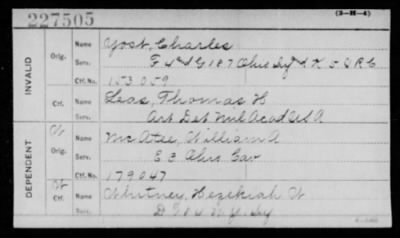 227505 (3-H-4)
INVALID
Orig.
Name Yost, Charles
Serv. F 4 & G 187 Ohio Inf
Ctf. No. 153.059
Ctf.
Name Leas, Thomas H
Serv. Art Det Mil Acad USA
DEPENDENT
Orig.
Name McAtee, William A
Serv. E 3 Ohio Cav
Ctf. No. 179047
Ctf.
Name Whitney, Hezekiah W
Serv.